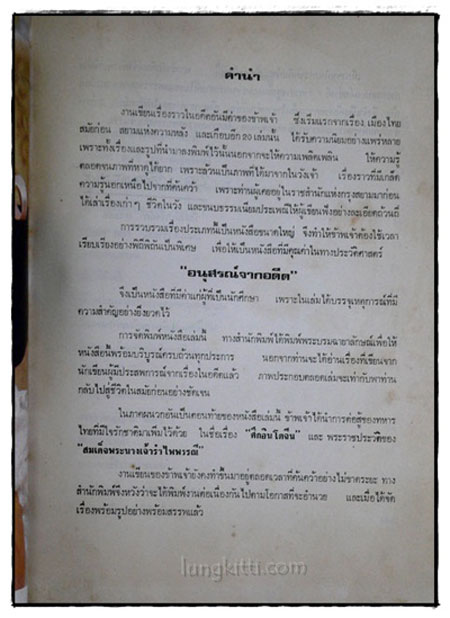 คำนำ
งานเขียนเรื่องราวในอดีตอันมีค่าของข้าพเจ้า ซึ่งเริ่มแรกจากเรื่อง เมืองไทย
สมัยก่อน สยามแห่งความหลัง และเกือบอีก 20 เล่มนั้น ได้รับความนิยมอย่างแพร่หลาย
เพราะทั้งเรื่องและรูปที่นำมาลงพิมพ์ไว้นั้นนอกจากจะให้ความเพลิดเพลิน ให้ความรู้
ตลอดจนภาพที่หาดูได้ยาก เพราะล้วนเป็นภาพที่ได้มาจากในวังเจ้า เรื่องราวที่มีเกล็ด
ความรู้นอกเหนือไปจากที่ค้นคว้า เพราะท่านผู้เคยอยู่ในราชสำนักแห่งกรุงสยามมาก่อน
ได้เล่าเรื่องเก่าๆ ชีวิตในวัง และขนบธรรมเนียมประเพณีให้ผู้เขียนฟังอย่างละเอียดถี่ถ้วน
การรวบรวมเรื่องประเภทนี้เป็นหนังสือขนาดใหญ่ จึงทำให้ข้าพเจ้าต้องใช้เวลา
เรียบเรียงอย่างพิถีพิถันเป็นพิเศษ เพื่อให้เป็นหนังสือที่มีคุณค่าในทางประวัติศาสตร์
"อนุสรณ์จากอดีต"
จึงเป็นหนังสือที่มีค่าแก่ผู้ที่เป็นนักศึกษา เพราะในเล่มได้บรรจุเหตุการณ์ที่มี
ความสำคัญอย่างยิ่งยวดไว้
การจัดพิมพ์หนังสือเล่มนี้ ทางสำนักพิมพ์ได้พิมพ์พระบรมฉายาลักษณ์เพื่อให้
หนังสือนี้พร้อมบริบูรณ์ครบถ้วนทุกประการ นอกจากท่านจะได้อ่านเรื่องที่เขียนจาก
นักเขียนผู้มีประสพการณ์จากเรื่องในอดีตแล้ว ภาพประกอบตลอดเล่มจะเท่ากับพาท่าน
กลับไปสู่ชีวิตในสมัยก่อนอย่างชัดเจน
ในภาคผนวกอันเป็นตอนท้ายของหนังสือเล่มนี้ ข้าพเจ้าได้นำการต่อสู้ของทหาร
ไทยที่มีใจรักชาติมาเพิ่มไว้ด้วย ในชื่อเรื่อง "ศึกอินโดจีน" และ พระราชประวัติของ
"สมเด็จพระนางเจ้ารำไพพรรณี"
งานเขียนของข้าพเจ้ายังคงทำขึ้นมาอยู่ตลอดเวลาที่ค้นคว้าอย่างไม่ขาดระยะ ทาง
สำนักพิมพ์จึงหวังว่าจะได้พิมพ์งานต่อเนื่องกันไปตามโอกาสที่จะอำนวย และเมื่อได้จัด
เรื่องพร้อมรูปอย่างพร้อมสรรพแล้ว
lungkitti.com